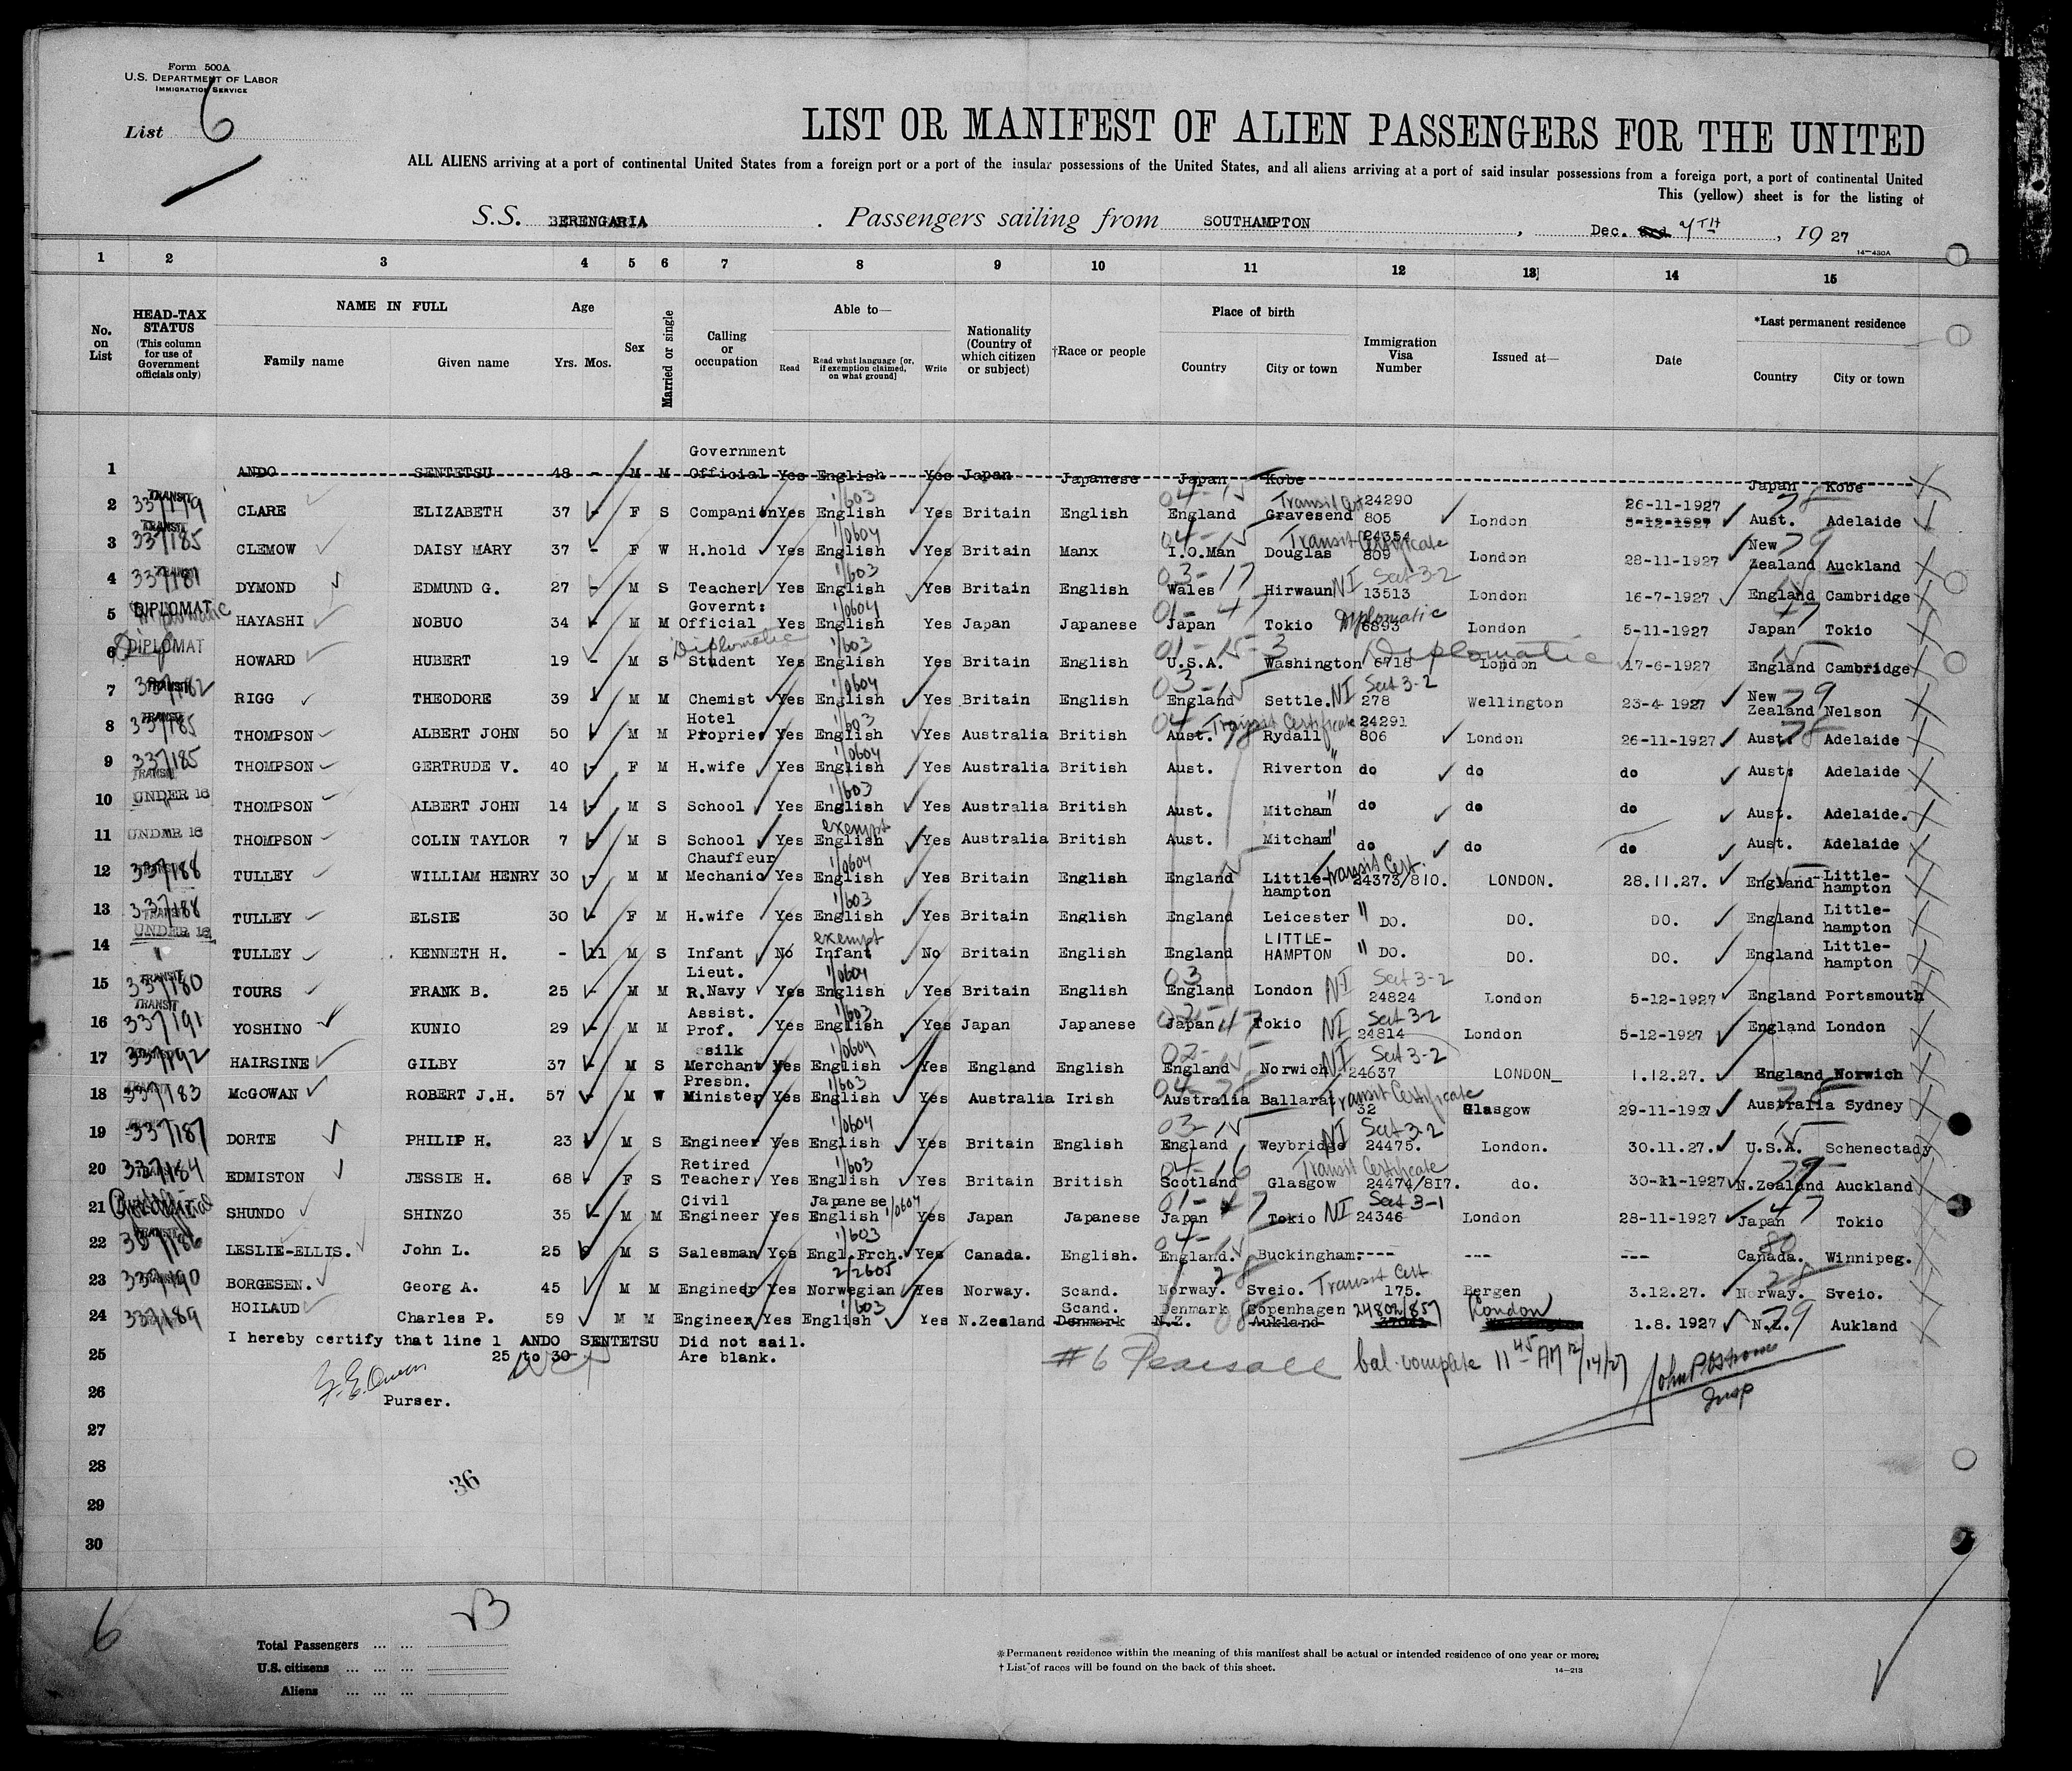 Form 500A
U.S. DEPARTMENT OF LABOR
IMMIGRATION SERVICE
List 6
LIST OR MANIFEST OF ALIEN PASSENGERS FOR THE UNITED
ALL ALIENS arriving at a port of continental United States from a foreign port or a port of the insular possessions of the United States, and all aliens arriving at a port of said insular possessions from a foreign port, a port of continental United
This (yellow) sheet is for the listing of
S.S. BERENGARIA . Passengers sailing from SOUTHAMPTON , Dec. 7TH , 19 27
14-430A
1 2 3 4 5 6 7 8 9 10 11 12 13 14 15
No. on List
HEAD-TAX STATUS (This column for use of Government officials only)
NAME IN FULL
Family name Given name
Age Yrs. Mos.
Sex
Married or single
Calling or occupation
Able to—
Read Read what language [or, if exemption claimed, on what ground] Write
Nationality (Country of which citizen or subject)
†Race or people
Place of birth
Country City or town
Immigration Visa Number
Issued at—
Date
*Last permanent residence
Country City or town
1 ANDO SENTETSU 48 - M M Government Official Yes English Yes Japan Japanese Japan Kobe Japan Kobe
2 TRANSIT 337179 CLARE ELIZABETH 37 - F S Companion Yes English 1/603 Yes Britain English England Gravesend Transit Cert 24290 805 London 26-11-1927 5-12-1927 Aust. Adelaide
3 TRANSIT 337185 CLEMOW DAISY MARY 37 - F W H.hold Yes English 1/0604 Yes Britain Manx I.O.Man Douglas Transit Certificate 24354 809 London 28-11-1927 New Zealand Auckland
4 TRANSIT 337181 DYMOND EDMUND G. 27 - M S Teacher Yes English 1/603 Yes Britain English 03-17 Wales Hirwaun NI Sect 3-2 13513 London 16-7-1927 England Cambridge
5 DIPLOMAT HAYASHI NOBUO 34 - M M Governt: Official Yes English 1/0604 Yes Japan Japanese 01-47 Japan Tokio Diplomatic 6893 London 5-11-1927 Japan Tokio
6 DIPLOMAT HOWARD HUBERT 19 - M S Diplomatic Student Yes English 1/603 Yes Britain English 01-15-3 U.S.A. Washington 6718 Diplomatic London 17-6-1927 England Cambridge
7 TRANSIT 337182 RIGG THEODORE 39 - M M Chemist Yes English 1/0604 Yes Britain English 03-15 England Settle. NI Sect 3-2 278 Wellington 23-4-1927 New Zealand Nelson
8 TRANSIT 337185 THOMPSON ALBERT JOHN 50 M M Hotel Proprier Yes English 1/603 Yes Australia British 04 Aust. 78 Rydall Transit Certificate 24291 806 London 26-11-1927 Aust. Adelaide
9 337185 TRANSIT THOMPSON GERTRUDE V. 40 - F M H.wife Yes English 1/0604 Yes Australia British Aust. Riverton " do do do Aust: Adelaide
10 UNDER 16 THOMPSON ALBERT JOHN 14 - M S School Yes English 1/603 Yes Australia British Aust. Mitcham " do do do Aust. Adelaide.
11 UNDER 16 THOMPSON COLIN TAYLOR 7 M S School Yes English exempt Yes Australia British Aust. Mitcham " do do do Aust. Adelaide
12 337188 TULLEY WILLIAM HENRY 30 - M M Chauffeur Mechanic Yes English 1/0604 Yes Britain English England Little-hampton Transit Cert. 24373/810. LONDON. 28.11.27. England Little-hampton
13 337188 TRANSIT TULLEY ELSIE 30 - F M H.wife Yes English 1/603 Yes Britain English England Leicester " DO. DO. DO. England Little-hampton
14 UNDER 16 " TULLEY KENNETH H. - 11 M S Infant No Infant exempt No Britain English England LITTLE-HAMPTON " DO. DO. DO. England Little-hampton
15 TRANSIT 337180 TOURS FRANK B. 25 - M M Lieut. R.Navy Yes English 1/0604 Yes Britain English 03 England London NI Sect 3-2 24824 London 5-12-1927 England Portsmouth
16 TRANSIT 337191 YOSHINO KUNIO 29 - M M Assist. Prof. Yes English 1/603 Yes Japan Japanese Japan Tokio NI Sect 3-2 24814 London 5-12-1927 England London
17 337192 HAIRSINE GILBY 37 - M S silk Merchant Yes English 1/0604 Yes England English England Norwich NI Sect 3-2 24637 LONDON_ 1.12.27. England Norwich
18 337183 McGOWAN ROBERT J.H. 57 - M W Presbn. Minister Yes English 1/603 Yes Australia Irish 04-78 Australia Ballarat Transit Certificate 32 Glasgow 29-11-1927 Australia Sydney
19 337187 DORTE PHILIP H. 23 M S Engineer Yes English 1/0604 Yes Britain English 03-15 England Weybridge NI Sect 3-2 24475. London. 30.11.27. U.S.A. Schenectady
20 337184 EDMISTON JESSIE H. 68 - F S Retired Teacher Yes English 1/603 Yes Britain British 04-16 Scotland Glasgow Transit Certificate 24474/817. do. 30-11-1927 N.Zealand Auckland
21 SHUNDO SHINZO 35 - M M Civil Engineer Yes Japanese English 1/0604 Yes Japan Japanese 01-47 Japan Tokio NI Sect 3-1 24346 London 28-11-1927 Japan Tokio
22 TRANSIT 337186 LESLIE-ELLIS. John L. 25 M S Salesman Yes Engl.Frch. 1/603 Yes Canada. English. England. Buckingham. ---- --- --- Canada. Winnipeg.
23 337190 BORGESEN. Georg A. 45 M M Engineer Yes Norwegian 2/2605 Yes Norway. Scand. Norway. Sveio. Transit Cert 175. Bergen 3.12.27. Norway. Sveio.
24 337189 HOILAUD Charles P. 59 M M Engineer Yes English 1/603 Yes N.Zealand Scand. Denmark Denmark N.Z. Copenhagen Aukland 24802/857 London 1.8.1927 N.Z. Aukland
I hereby certify that line 1 ANDO SENTETSU Did not sail.
25 25 to 30 Are blank.
#6 Pearsall bal. complete 11 45 AM 12/14/27
Insp
26 Purser.
27
28
29 36
30
6
23
Total Passengers ... ...
U.S. citizens ... ... ...
Aliens ... ... ...
*Permanent residence within the meaning of this manifest shall be actual or intended residence of one year or more.
† List of races will be found on the back of this sheet.
14-213